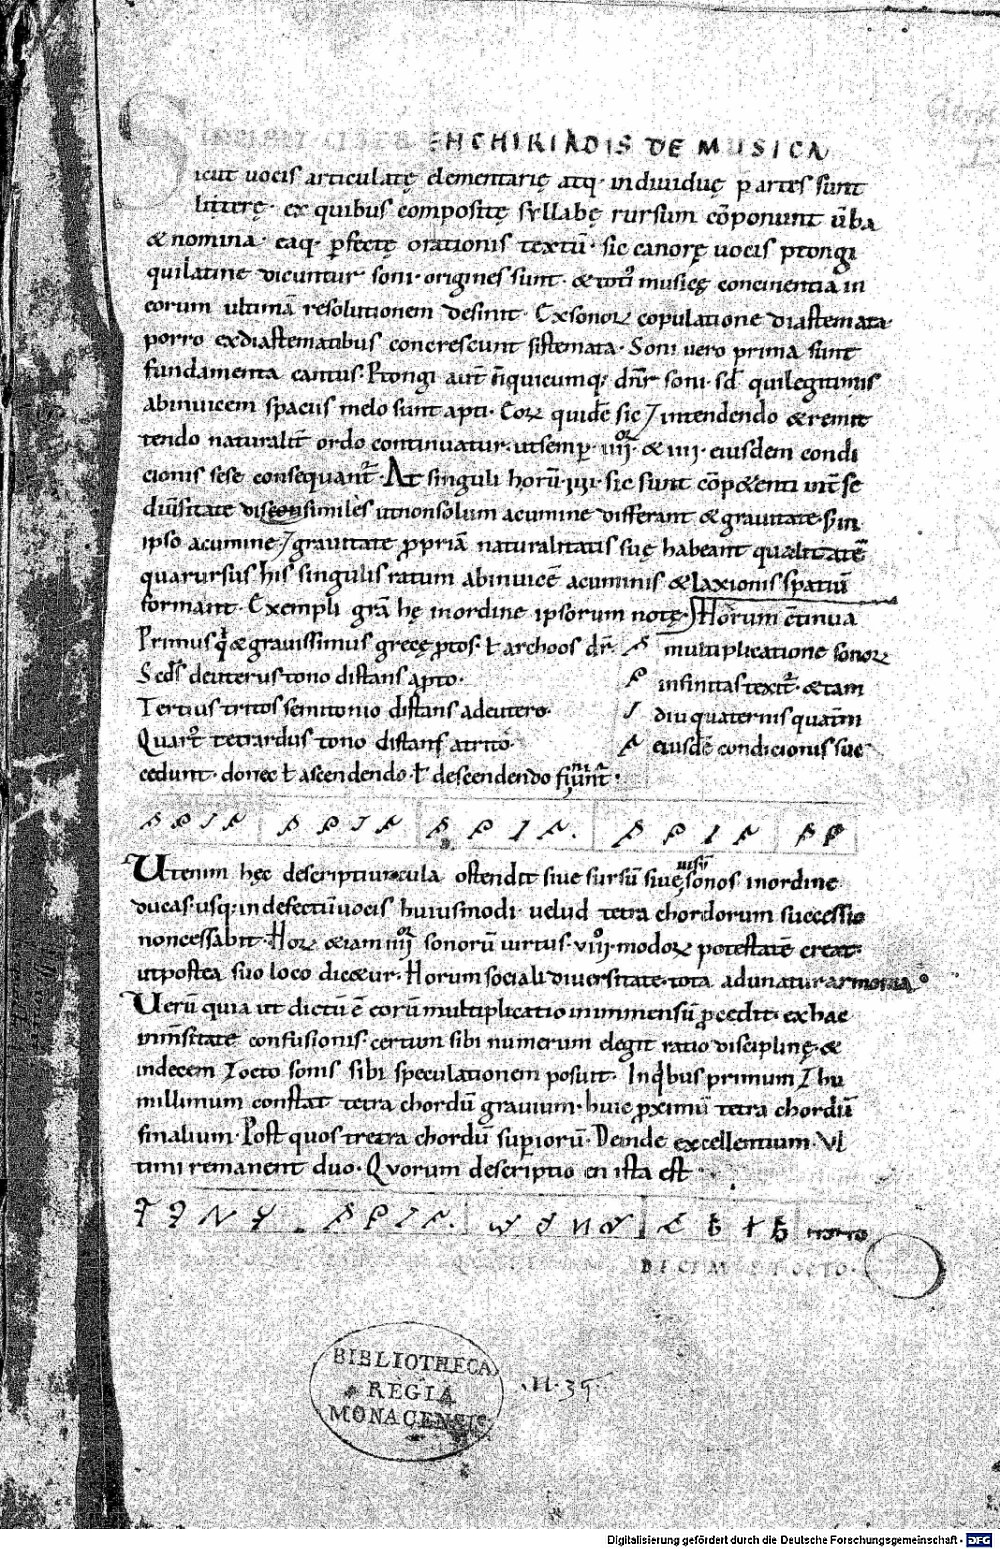 INCIPIT LIBER ENCHIRIADIS DE MUSICA
Sicut uocis articulatę elementarię atq; indiuiduę partes sunt
litterę. ex quibus compositę syllabę rursum cōponunt ūba
& nomina. eaq; ꝑfectę orationis textū. sic canorę uocis ptongi
qui latine dicuntur soni. origines sunt. & toti' musicę concinentia in
eorum ultimā resolutionem desinit. Ex sonoꝝ copulatione diastemata
porro ex diastematibus concrescunt sistemata. Soni uero prima sunt
fundamenta cantus. Ptongi aut̄ n̄ quicumq; dn̄r soni. sꝫ qui legitimis
ab inuicem spaciis melo sunt apti. Eoꝝ quidē sic ⁊ intendendo & remit
tendo naturalit̄ ordo continuatur. ut semꝑ iiiior & iiii. eiusdem condi
cionis sese consequant̄. At singuli horū iiii. sic sunt cōp&enti int̄ se
diūsitate dissimiles ut non solum acumine differant & grauitate. s; in
ipso acumine ⁊ grauitate ꝓpriā naturalitatis suę habeant qualitatē
qua rursus his singulis ratum ab inuicē acuminis & laxionis spatiū
formant. Exempli grā hę in ordine ipsorum notę. Horum c̄tinua
Primus q̇ & grauissimus grece ꝓtos. ł archoos dr̄. multiplicatione sonoꝝ
Secd̄s deuterus tono distans a ꝓto. infinitas texit̄. & tam
Tertius tritos semitonio distans a deutero. diu quaternis quat̄ni
Quart' tetrardus tono distans a trito. eiusdē condicionis suc
cedunt. donec ł ascendendo. ł descendendo finiant̄.
Ut enim hęc descriptiuncula ostendit siue sursū siue iusū sonos in ordine
ducas. usq; in defectū uocis huiusmodi uelud tetrachordorum successio
non cessabit. Hoꝝ &iam iiiior sonorū uirtus. viiio modoꝝ potestatē creat.
ut postea suo loco dic&ur. Horum sociali diuersitate. tota adunatur armonia.
Uerū quia ut dictū ē eorū multiplicatio in immensū ꝓcedit. ex hac
inm̄sitate confusionis. certum sibi numerum elegit ratio disciplinę. &
in decem ⁊ octo sonis sibi speculationem posuit. In qibus primum ⁊ hu
millimum constat tetrachordū grauium. huic ꝓximū tetrachordū
finalium. Post quos tretrachordū superiorū. Deinde excellentium. Vl
timi remanent duo. Quorum descriptio en ista est.
DECIM ET OCTO.
BIBLIOTHECA
REGIA
MONACENSIS.
Digitalisierung gefördert durch die Deutsche Forschungsgemeinschaft - DFG